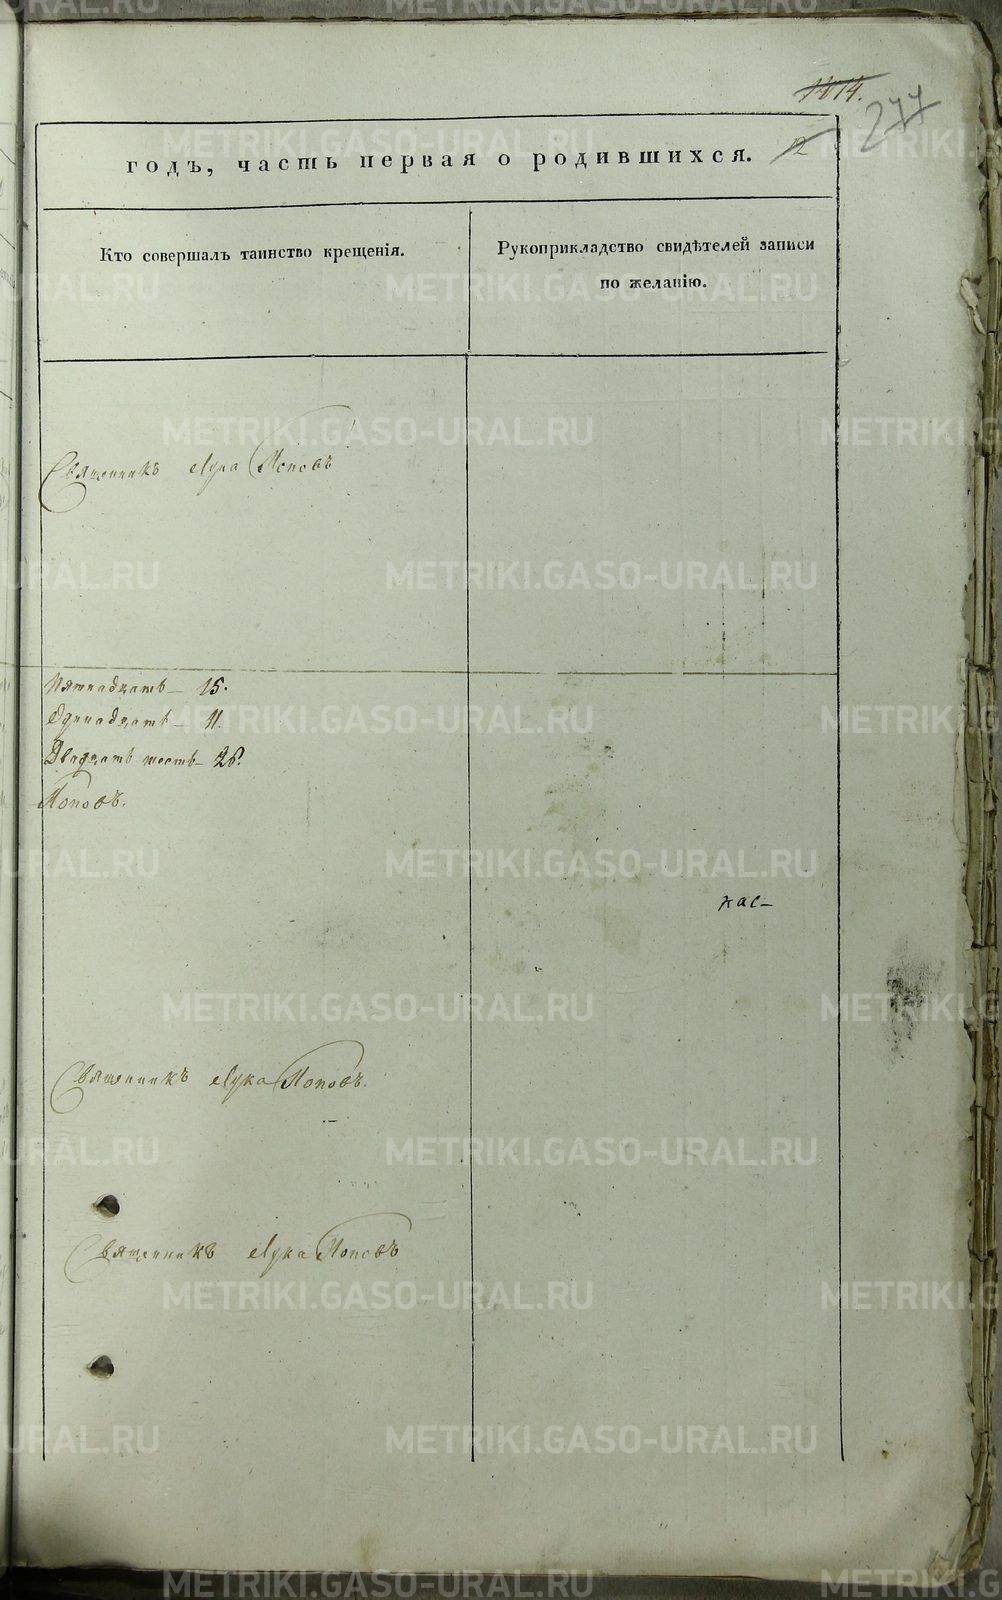 1814.
277
годъ, часть первая о родившихся. 2
Кто совершалъ таинство крещенія.
Рукоприкладство свидѣтелей записи
по желанію.
Священникъ Лука Поповъ
Пятнадцать – 15.
Одинадцать – 11.
Двадцать шесть – 26.
Поповъ.
Священникъ Лука Поповъ.
Священникъ Лука Поповъ
METRIKI.GASO-URAL.RU